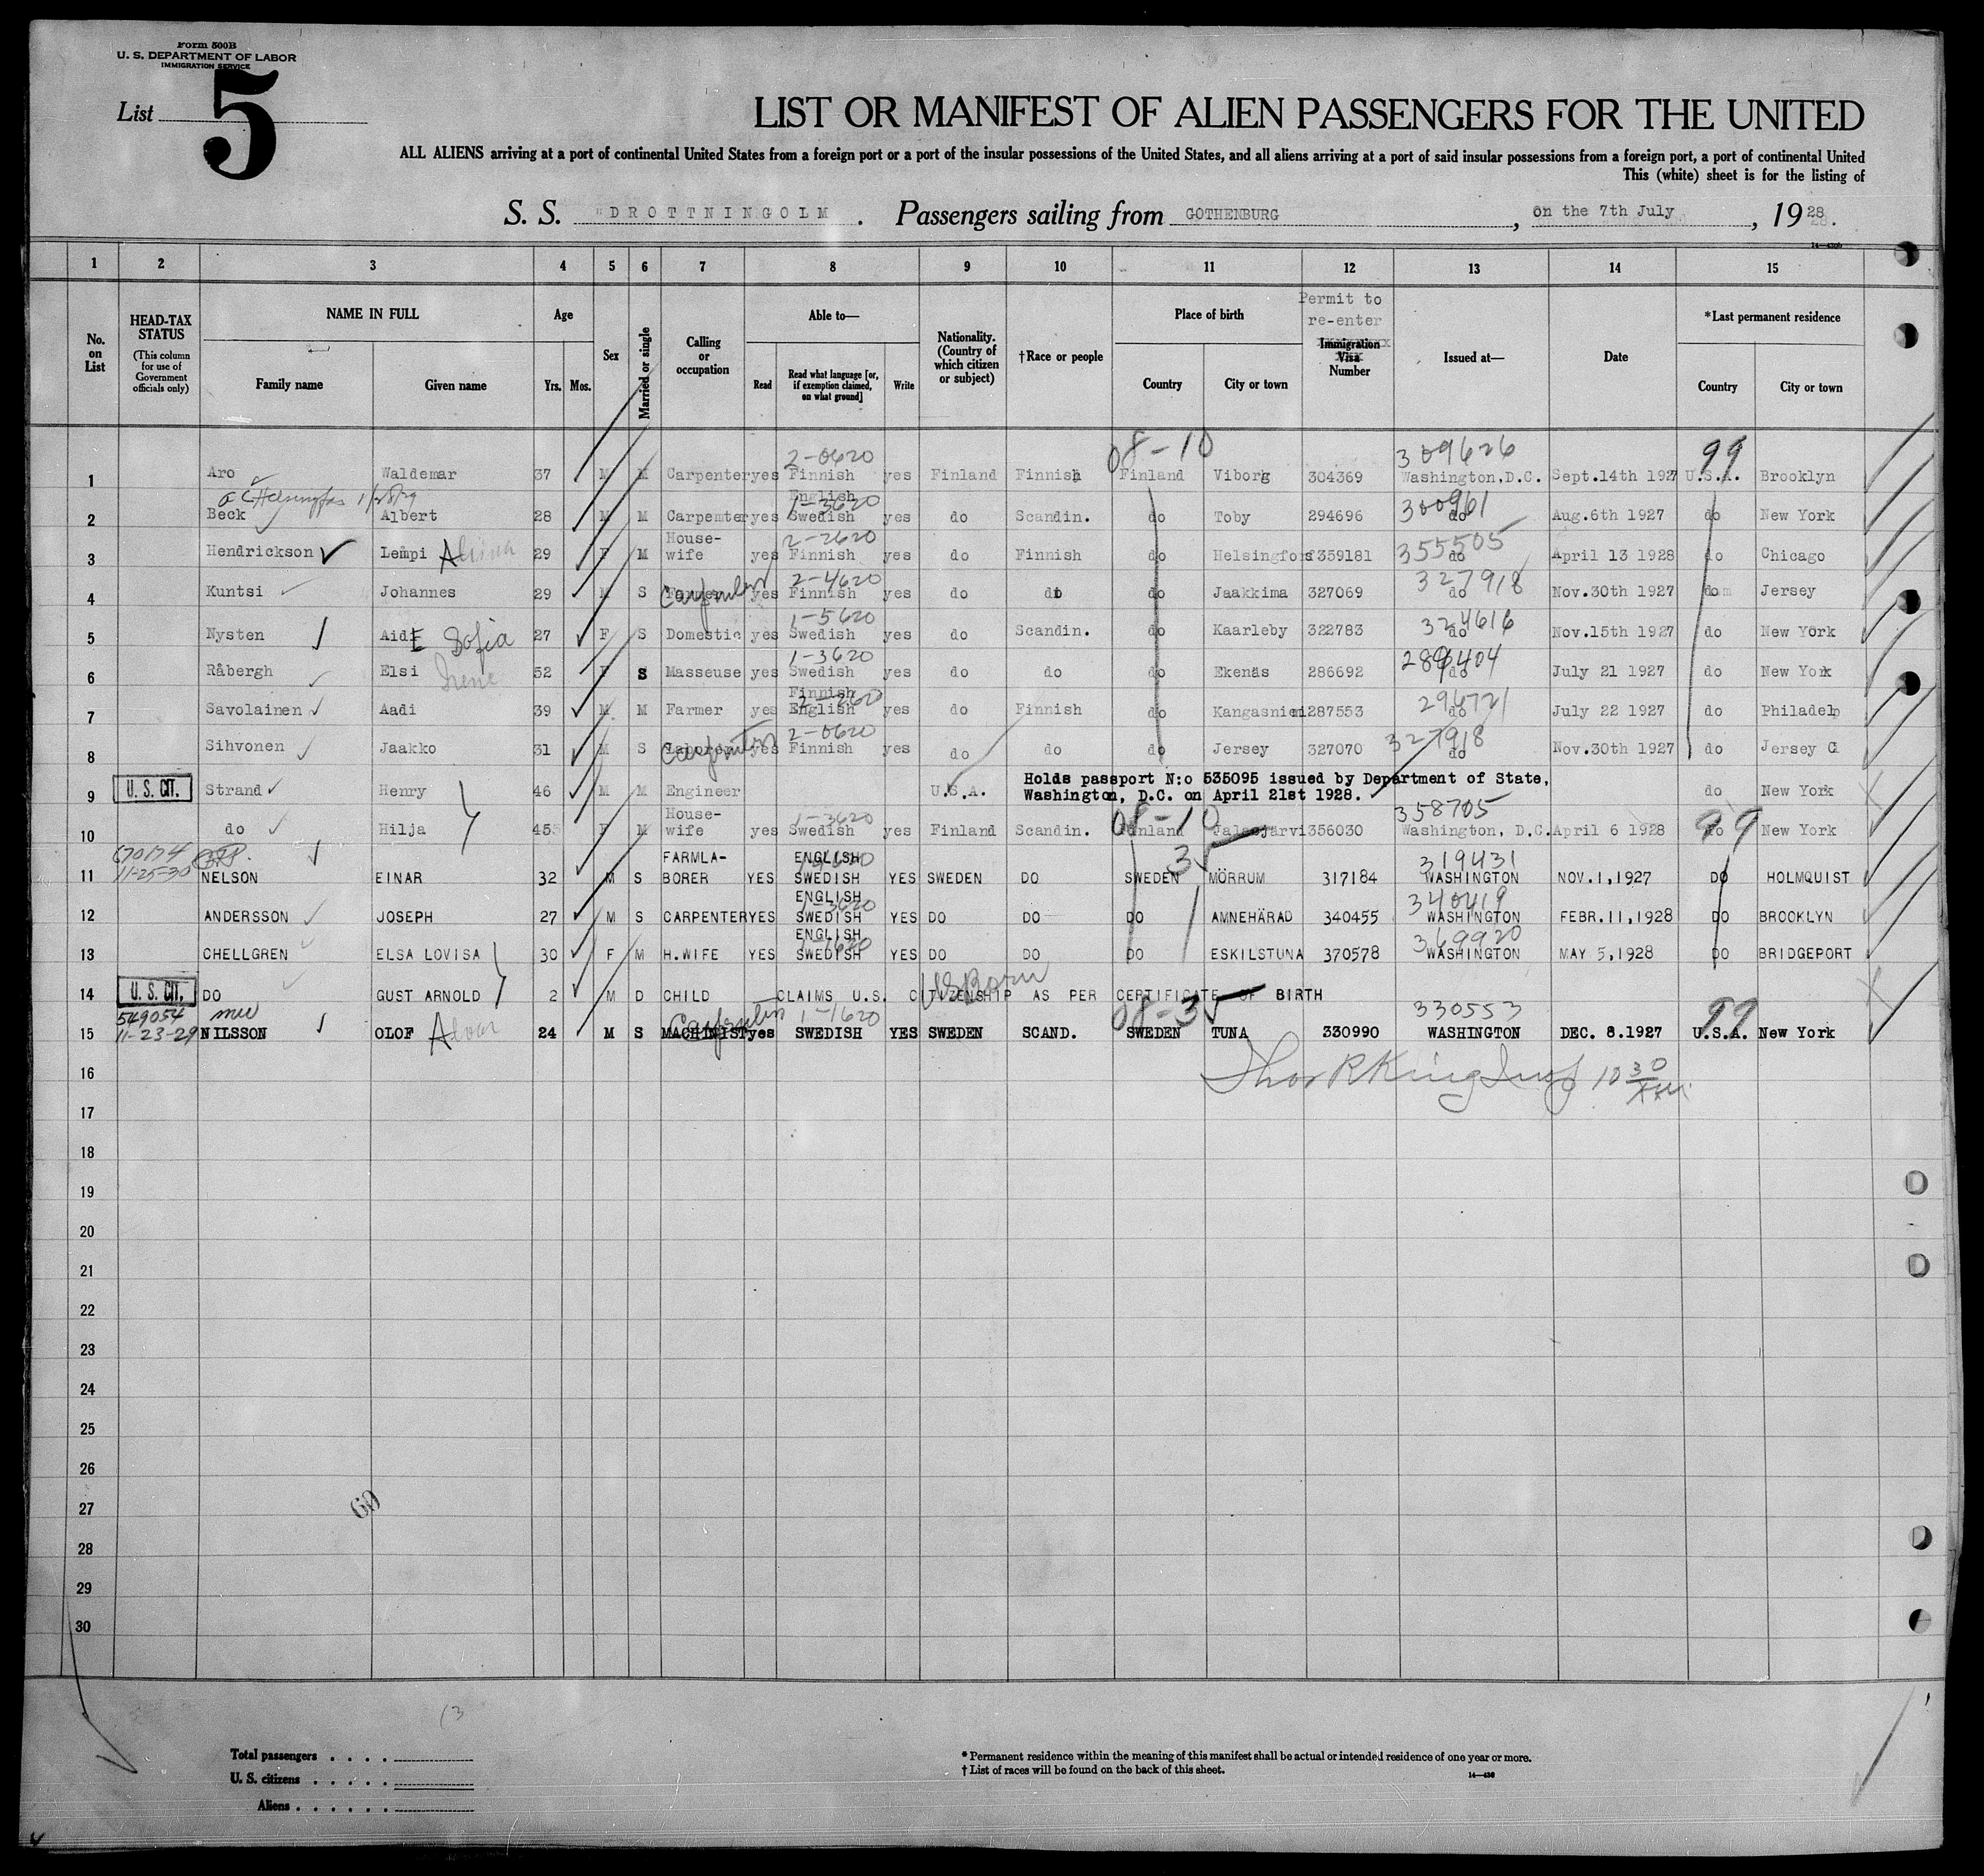 Form 500B
U. S. DEPARTMENT OF LABOR
IMMIGRATION SERVICE
List 5
LIST OR MANIFEST OF ALIEN PASSENGERS FOR THE UNITED
ALL ALIENS arriving at a port of continental United States from a foreign port or a port of the insular possessions of the United States, and all aliens arriving at a port of said insular possessions from a foreign port, a port of continental United
This (white) sheet is for the listing of
S. S. "DROTTNINGOLM. Passengers sailing from GOTHENBURG, on the 7th July, 1928.
1 2 3 4 5 6 7 8 9 10 11 12 13 14 15
No. on List
HEAD-TAX STATUS (This column for use of Government officials only)
NAME IN FULL
Family name Given name
Age Yrs. Mos.
Sex
Married or single
Calling or occupation
Able to—
Read Read what language [or, if exemption claimed, on what ground] Write
Nationality. (Country of which citizen or subject)
†Race or people
Place of birth
Country City or town
Permit to re-enter
Immigration Visa Number
Issued at—
Date
*Last permanent residence
Country City or town
2-0620 08-10 309626 99
1 Aro Waldemar 37 M M Carpenter yes Finnish yes Finland Finnish Finland Viborg 304369 Washington,D.C. Sept.14th 1927 U.S.A. Brooklyn
English
1-3620 300961
2 Beck Albert 28 M M Carpemter yes Swedish yes do Scandin. do Toby 294696 do Aug.6th 1927 do New York
House- 2-2620 355505
3 Hendrickson Lempi Alina 29 F M wife yes Finnish yes do Finnish do Helsingfors 359181 do April 13 1928 do Chicago
2-4620 327918
4 Kuntsi Johannes 29 M S yes Finnish yes do do do Jaakkima 327069 do Nov.30th 1927 do Jersey
1-5620 324616
5 Nysten AidE Sofia 27 F S Domestic yes Swedish yes do Scandin. do Kaarleby 322783 do Nov.15th 1927 do New York
1-3620 289404
6 Råbergh Elsi Irene 52 F S Masseuse yes Swedish yes do do do Ekenäs 286692 do July 21 1927 do New York
Finnish
296721
7 Savolainen Aadi 39 M M Farmer yes English yes do Finnish do Kangasniemi 287553 do July 22 1927 do Philadelp
2-0620 327918
8 Sihvonen Jaakko 31 M S yes Finnish yes do do do Jersey 327070 do Nov.30th 1927 do Jersey C
9 U. S. CIT. Strand Henry 46 M M Engineer U.S.A. Holds passport N:o 535095 issued by Department of State,
Washington, D.C. on April 21st 1928. do New York
House- 1-3620 08-10 358705 99
10 do Hilja 45 F M wife yes Swedish yes Finland Scandin. Finland Jalasjärvi 356030 Washington, D.C. April 6 1928 do New York
670174 FARMLA- ENGLISH 35 319431
11 11-25-30 NELSON EINAR 32 M S BORER YES SWEDISH YES SWEDEN DO SWEDEN MÖRRUM 317184 WASHINGTON NOV.1,1927 DO HOLMQUIST
ENGLISH
1-3620 340419
12 ANDERSSON JOSEPH 27 M S CARPENTER YES SWEDISH YES DO DO DO AMNEHÄRAD 340455 WASHINGTON FEBR.11,1928 DO BROOKLYN
ENGLISH
1-1620 369920
13 CHELLGREN ELSA LOVISA 30 F M H.WIFE YES SWEDISH YES DO DO DO ESKILSTUNA 370578 WASHINGTON MAY 5,1928 DO BRIDGEPORT
US Born
14 U. S. CIT. DO GUST ARNOLD 2 M D CHILD CLAIMS U.S. CITIZENSHIP AS PER CERTIFICATE OF BIRTH
549054 1-1620 08-35 330553 99
15 11-23-29 NILSSON OLOF Alvar 24 M S MACHINIST yes SWEDISH YES SWEDEN SCAND. SWEDEN TUNA 330990 WASHINGTON DEC. 8.1927 U.S.A. New York
16
17
18
19
20
21
22
23
24
25
26
27
28
29
30
60
Total passengers
U. S. citizens
Aliens
* Permanent residence within the meaning of this manifest shall be actual or intended residence of one year or more.
† List of races will be found on the back of this sheet.